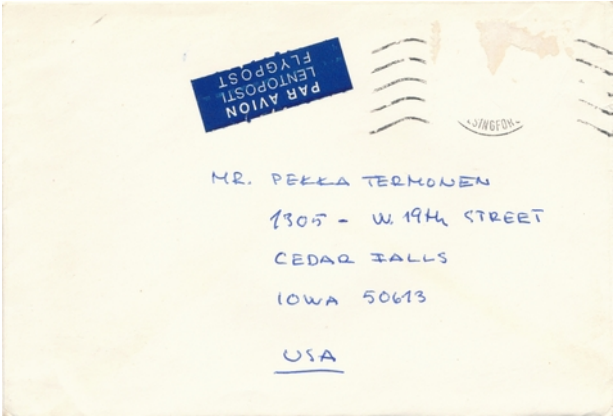 PAR AVION
LENTOPOSTI
FLYGPOST
MR. PEKKA TERMONEN
1305 - W. 19th STREET
CEDAR FALLS
IOWA 50613
USA